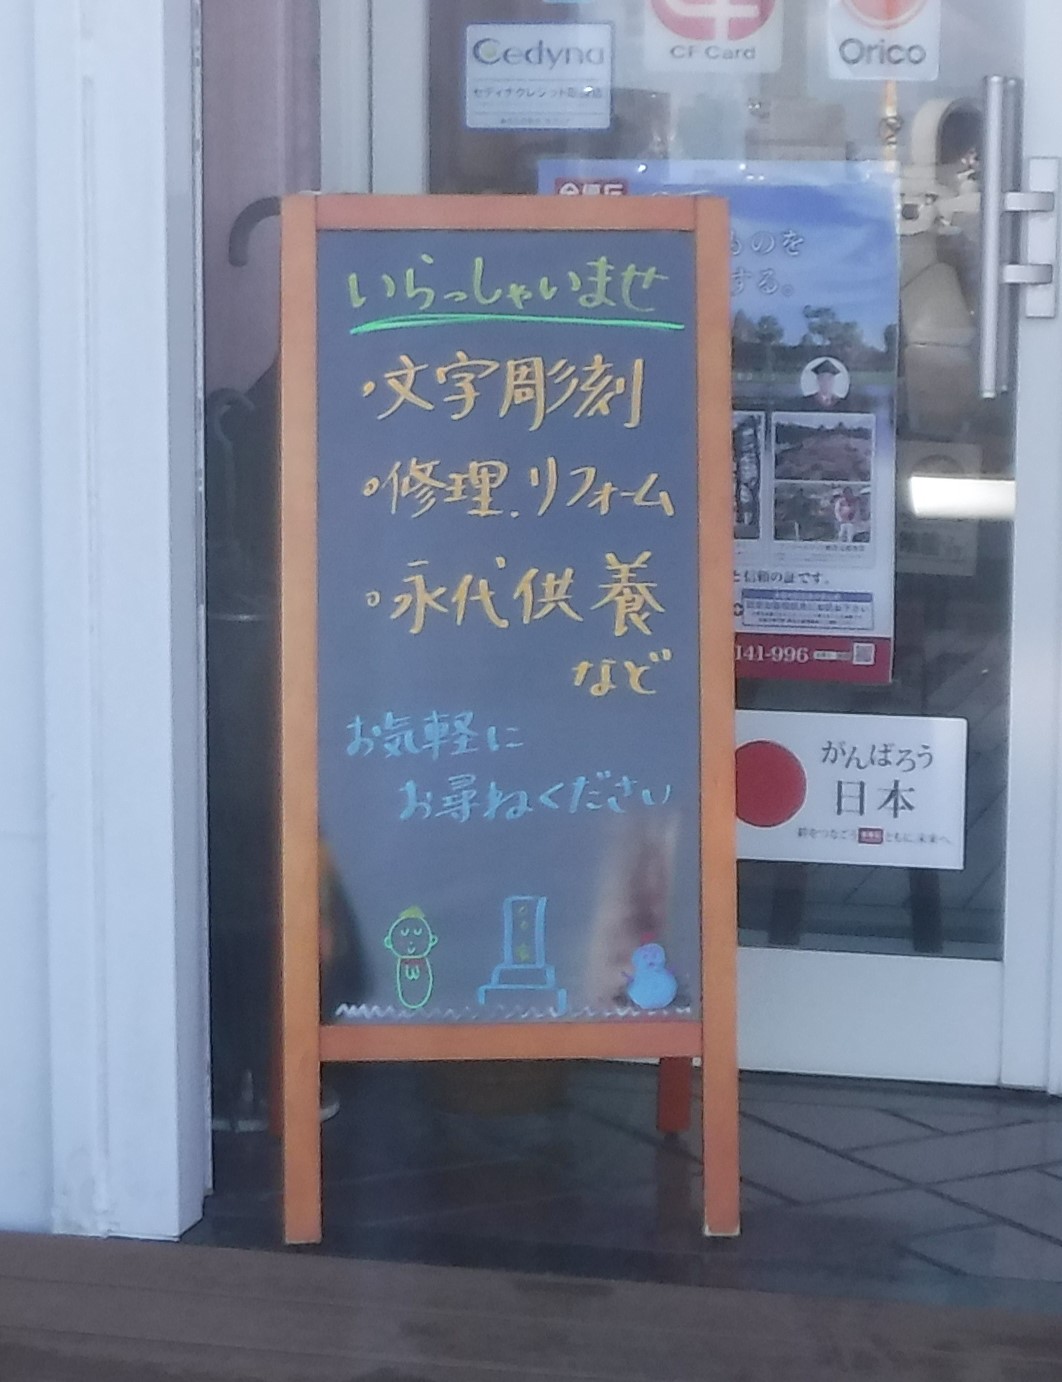 Cedyna
CF Card
Orico
いらっしゃいませ
・文字彫刻
・修理.リフォーム
・永代供養
など
お気軽に
お尋ねください
ものを
する。
と信頼の証です。
141-996
がんばろう
日本
絆をつなごう
ともに未来へ